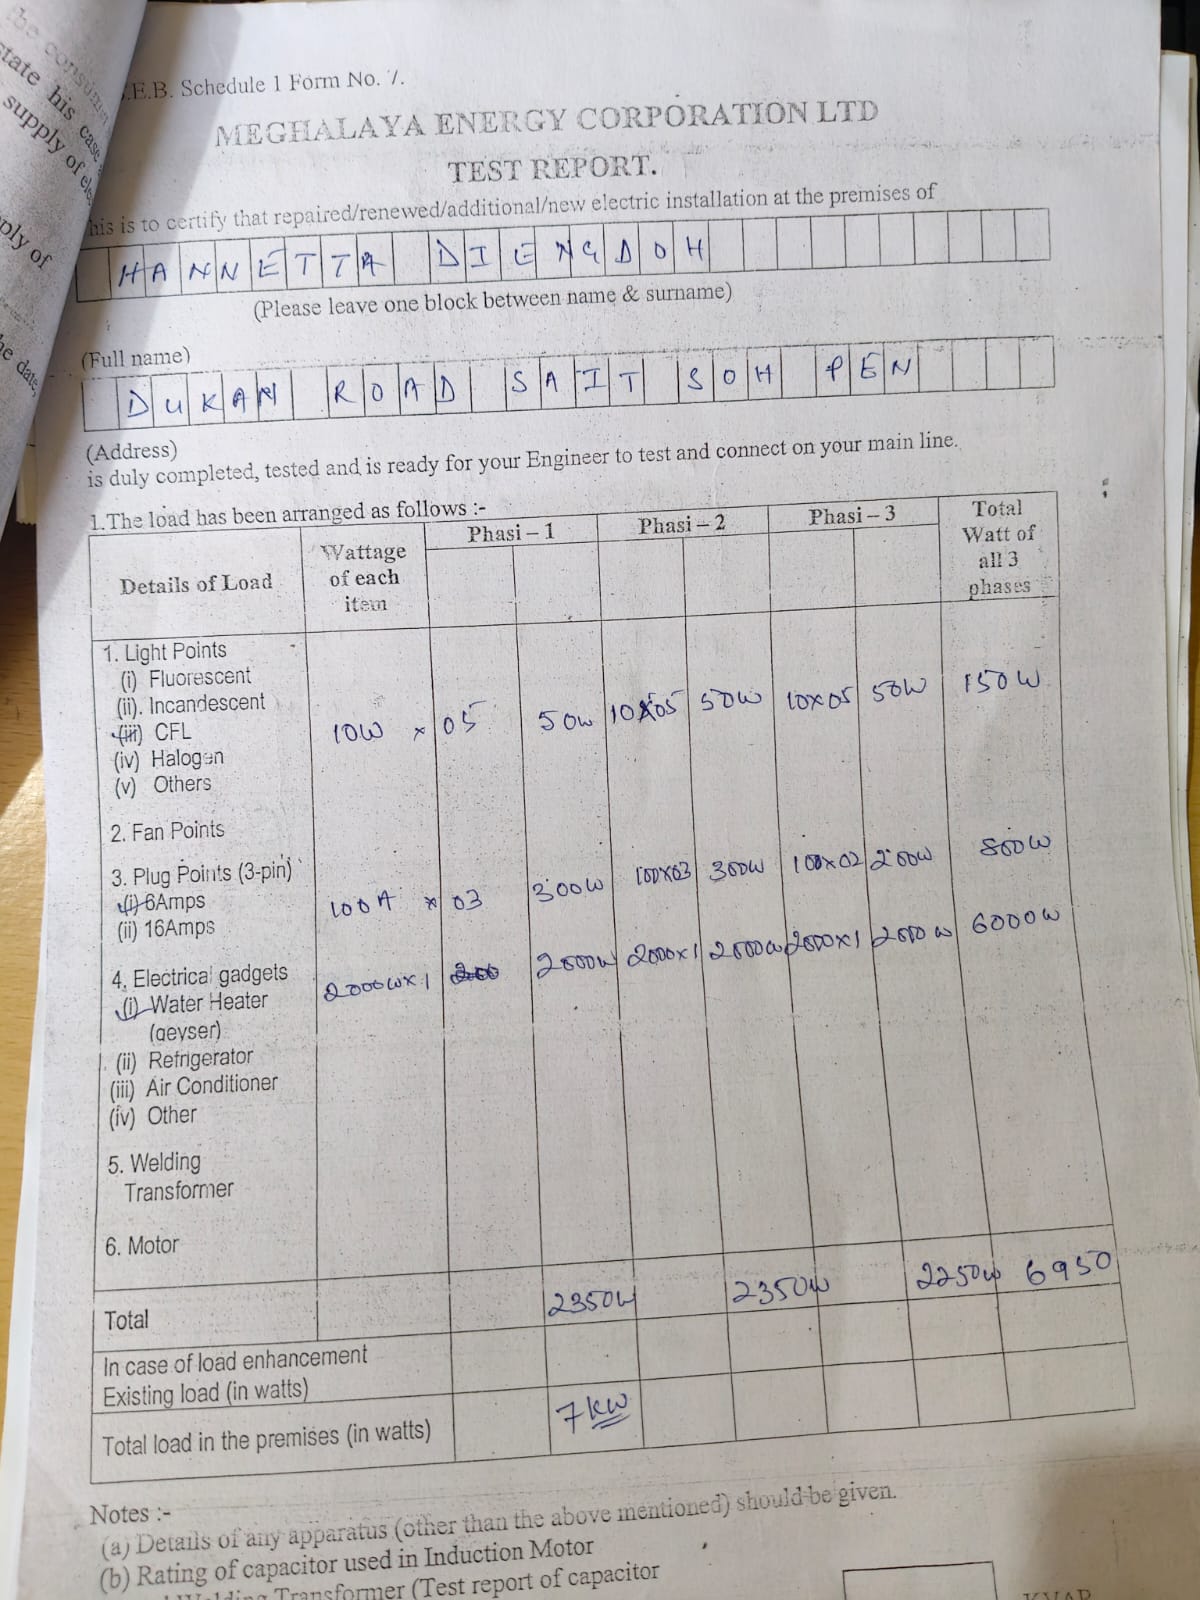 the consumer
state his case
supply of
ply of
he date,
.E.B. Schedule 1 Form No. 7.
MEGHALAYA ENERGY CORPORATION LTD
TEST REPORT.
his is to certify that repaired/renewed/additional/new electric installation at the premises of
HANNETTA DIENGDOH
(Please leave one block between name & surname)
(Full name)
DUKAN ROAD SAIT SOH PEN
(Address)
is duly completed, tested and is ready for your Engineer to test and connect on your main line.
1.The load has been arranged as follows :-
Details of Load Wattage of each item Phasi – 1 Phasi – 2 Phasi – 3 Total Watt of all 3 phases
1. Light Points
(i) Fluorescent
(ii). Incandescent
(iii) CFL 10W x 05 50W 10x05 50W 10x05 50W 150W
(iv) Halogen
(v) Others
2. Fan Points
3. Plug Points (3-pin)
(i) 6Amps 100A x 03 300W 100x03 300W 100x02 200W 800W
(ii) 16Amps
4. Electrical gadgets
(i) Water Heater 2000Wx1 200 2000W 2000x1 2000W 2000x1 2000W 6000W
(geyser)
(ii) Refrigerator
(iii) Air Conditioner
(iv) Other
5. Welding
Transformer
6. Motor
Total 2350W 2350W 2250W 6950
In case of load enhancement
Existing load (in watts)
Total load in the premises (in watts) 7KW
Notes :-
(a) Details of any apparatus (other than the above mentioned) should be given.
(b) Rating of capacitor used in Induction Motor
Transformer (Test report of capacitor
KVAR